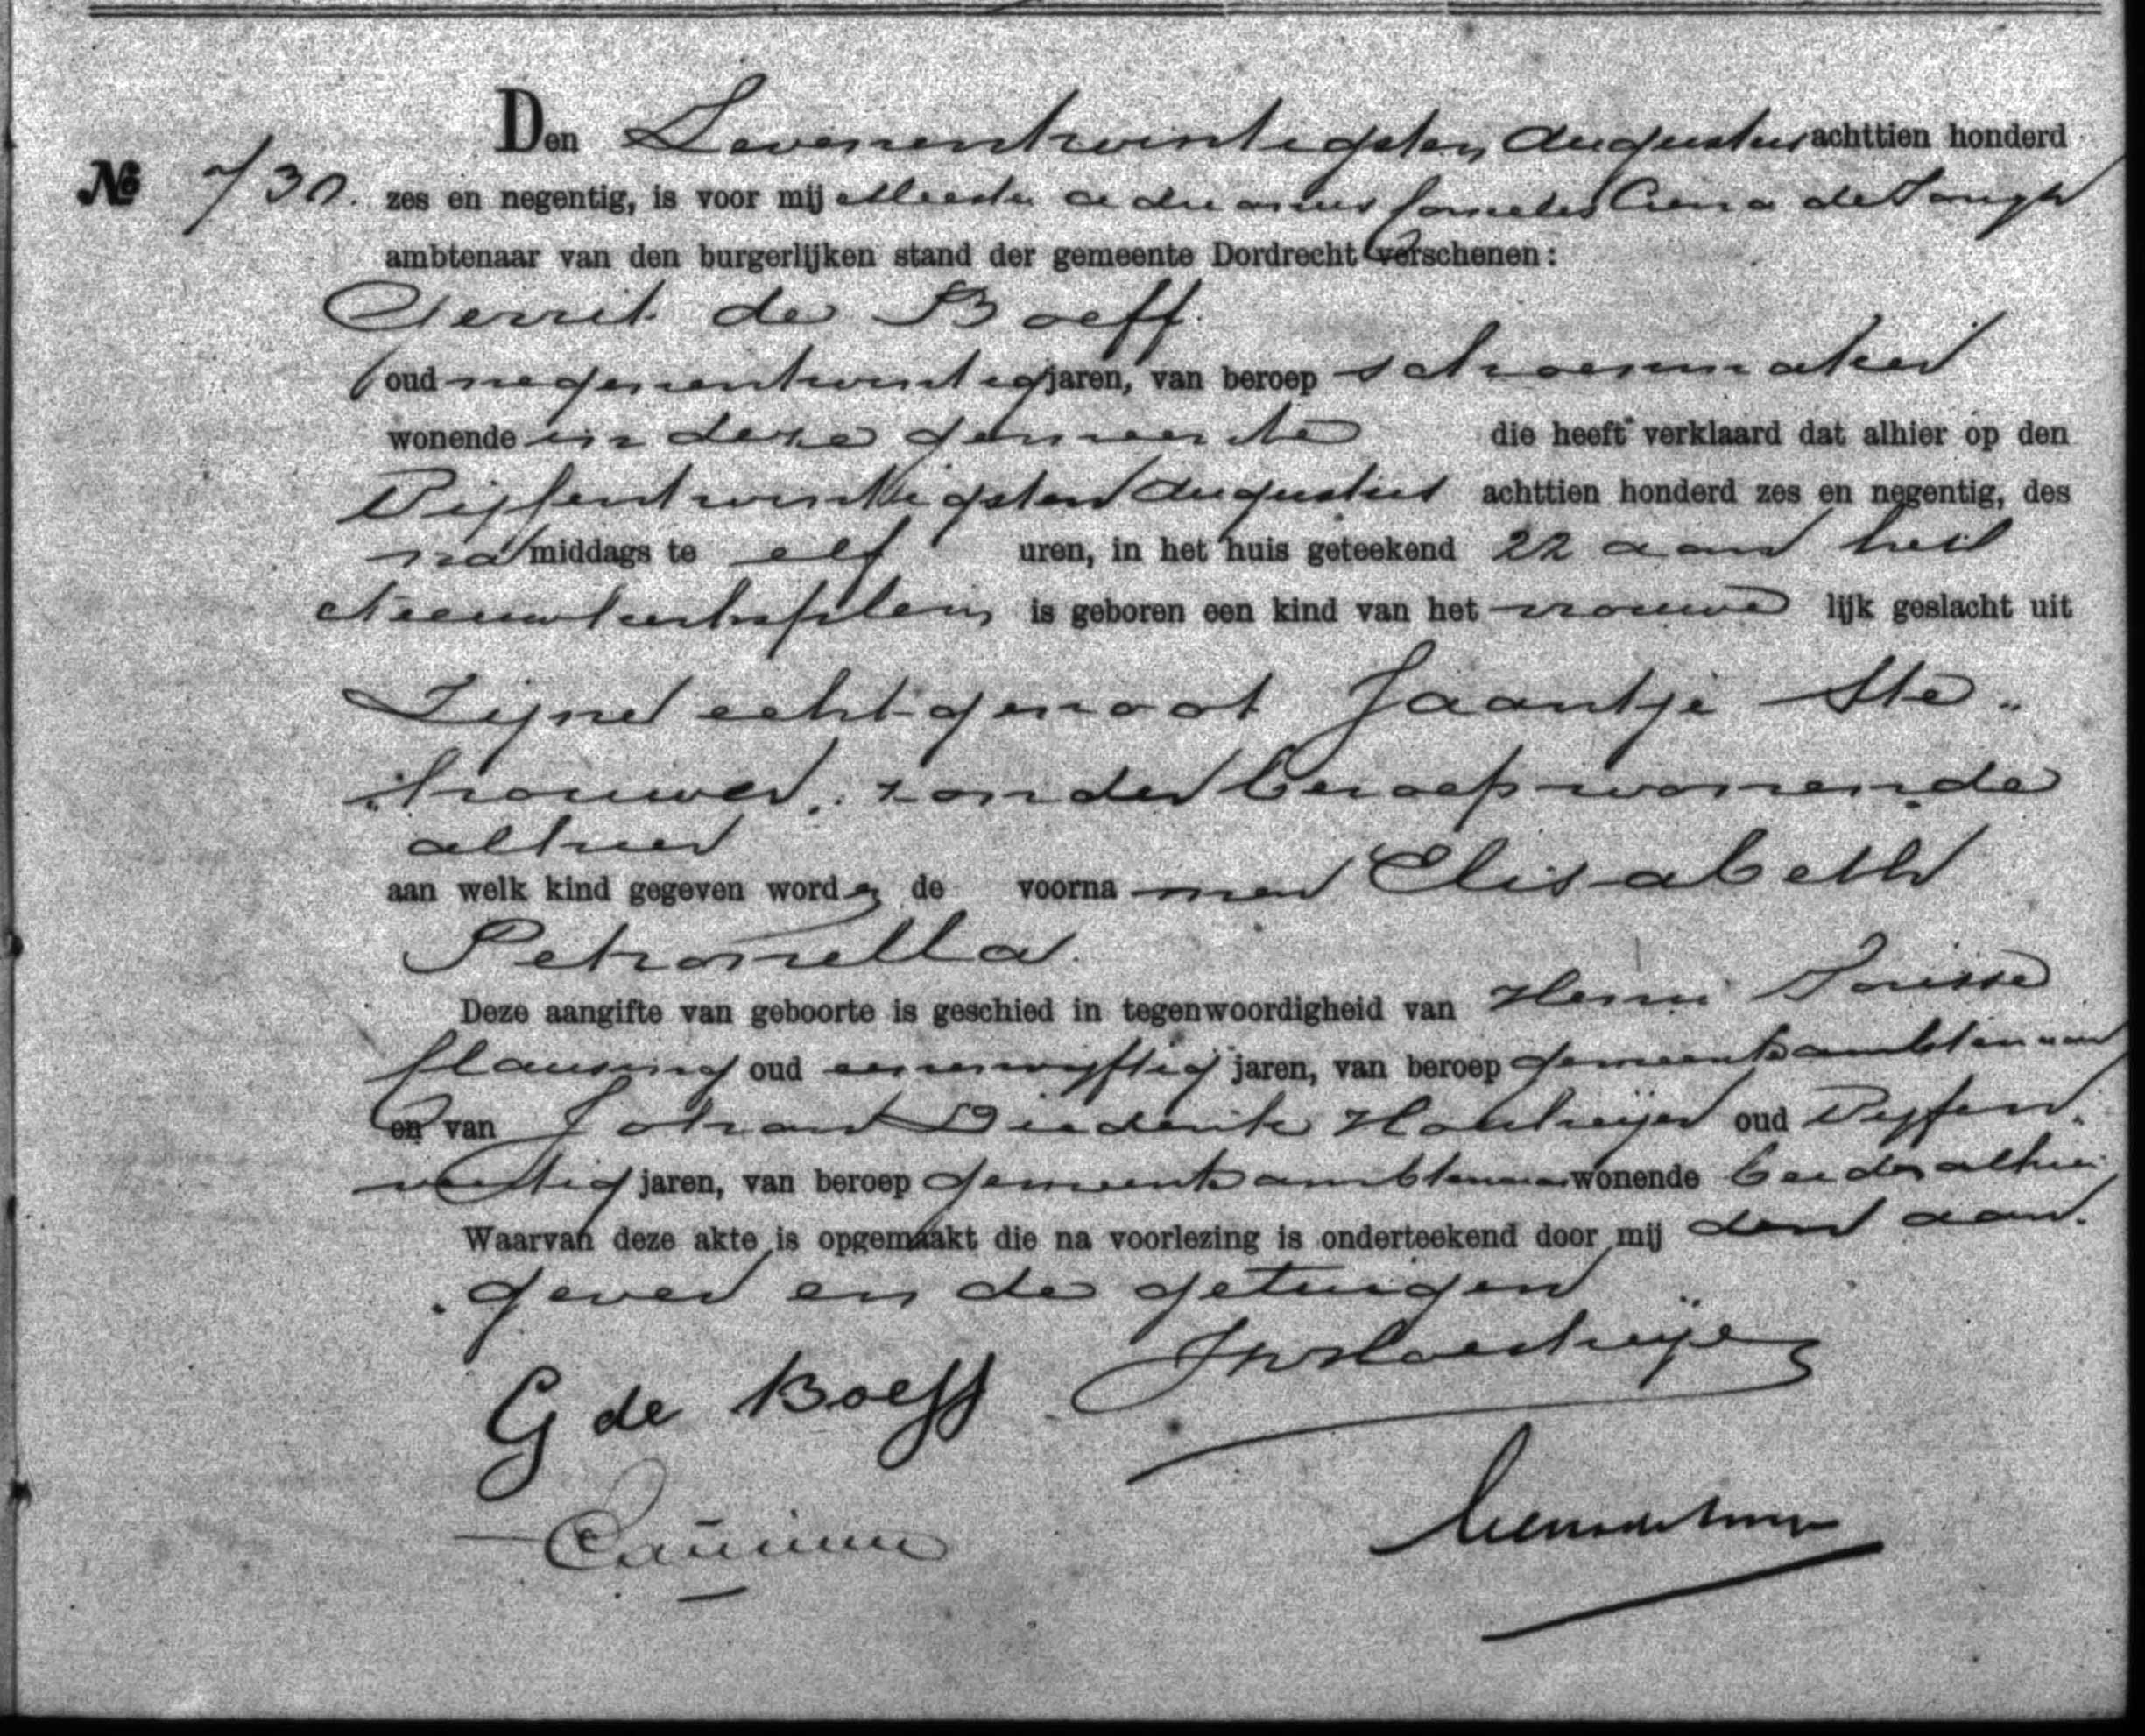 Den Zevenentwintigsten Augustus achttien honderd
No 730. zes en negentig, is voor mij Meester Adrianus Cornelis Crena de Iongh
ambtenaar van den burgerlijken stand der gemeente Dordrecht verschenen:
Gerrit de Boeff
oud negenentwintig jaren, van beroep schoenmaker
wonende in deze gemeente die heeft verklaard dat alhier op den
Vijfentwintigsten Augustus achttien honderd zes en negentig, des
na middags te elf uren, in het huis geteekend 22 aan het
Nieuwkerksplein is geboren een kind van het vrouwe lijk geslacht uit
Zijne echtgenoot Jaantje Ste„
„trouwer. zonder beroep wonende
alhier
aan welk kind gegeven worden de voorna men Elisabeth
Petronella.
Deze aangifte van geboorte is geschied in tegenwoordigheid van Henri Jorisse
Clausing oud eenenvijftig jaren, van beroep gemeenteambtenaar
en van Johan Diederik Hoeltreijer oud Vijfen.
veertig jaren, van beroep gemeenteambtenaar wonende beiden alhier
Waarvan deze akte is opgemaakt die na voorlezing is onderteekend door mij den aan.
.gever en de getuigen
G de Boeff